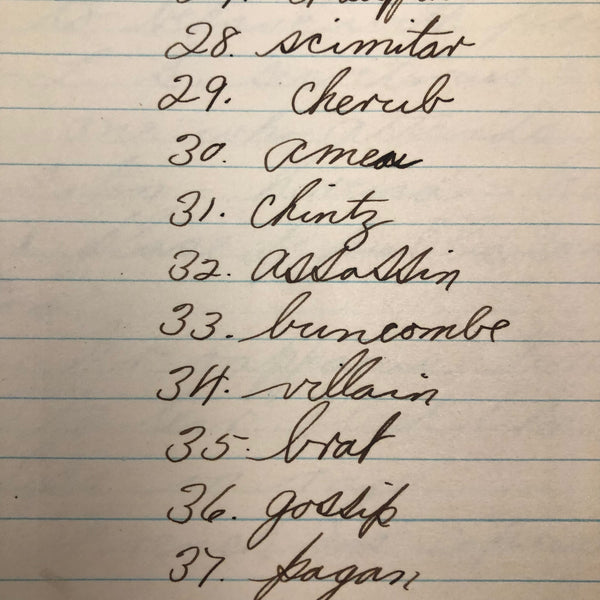 28. scimitar
29. cherub
30.
31. chintz
32. assassin
33. buncombe
34. villain
35. brat
36. gossip
37. pagan